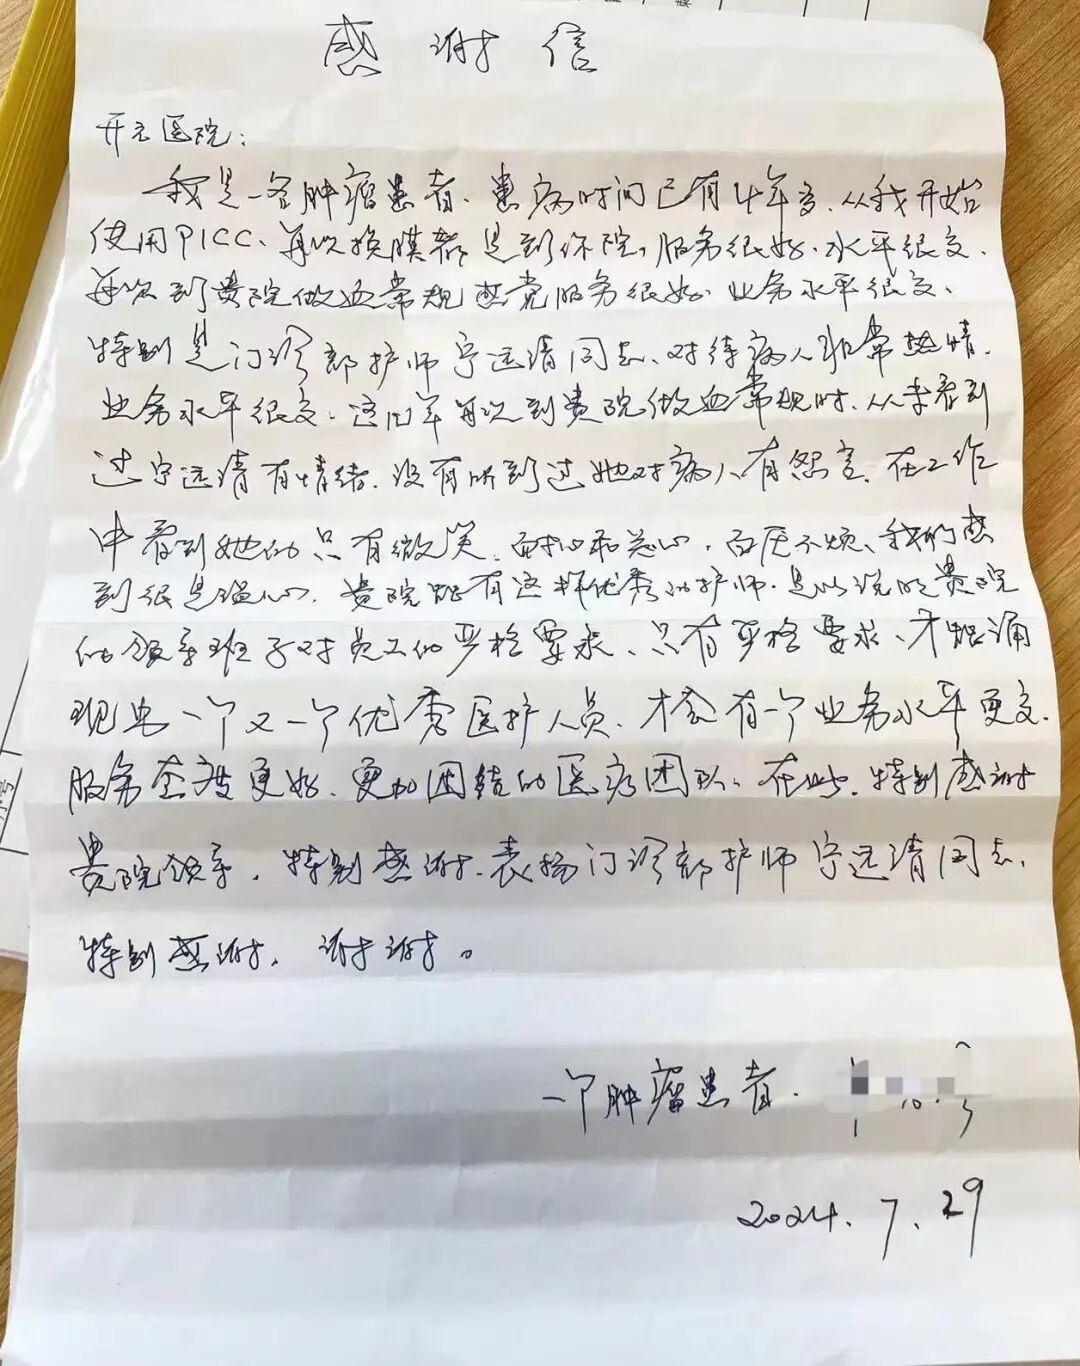 感谢信
开元医院:
我是一名肿瘤患者、患病时间已有4年多、从我开始
使用PICC、每次换膜都是到你院,服务很好、水平很高、
每次到贵院做血常规 感觉服务很好、业务水平很高、
特别是门诊部护师宁远清同志、对待病人非常热情、
业务水平很高、这四年每次到贵院做血常规时、从未看到
过宁远清有情绪、没有听到过她对病人有怨言、在工作
中看到她的只有微笑、耐心和关心、百厌不烦、我们感
到很是温心、贵院能有这样优秀的护师、足以说明贵院
的领导班子对员工的严格要求、只有严格要求、才能涌
现出一个又一个优秀医护人员、才会有一个业务水平更高、
服务态度更好、更加团结的医疗团队、在此、特别感谢
贵院领导、特别感谢、表扬门诊部护师宁远清同志、
特别感谢、谢谢。
一个肿瘤患者、
2024.7.29